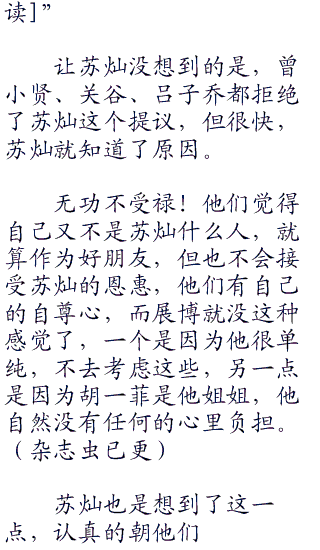 读]”
让苏灿没想到的是，曾
小贤、关谷、吕子乔都拒绝
了苏灿这个提议，但很快，
苏灿就知道了原因。
无功不受禄！他们觉得
自己又不是苏灿什么人，就
算作为好朋友，但也不会接
受苏灿的恩惠，他们有自己
的自尊心，而展博就没这种
感觉了，一个是因为他很单
纯，不去考虑这些，另一点
是因为胡一菲是他姐姐，他
自然没有任何的心里负担。
（杂志虫已更）
苏灿也是想到了这一
点，认真的朝他们